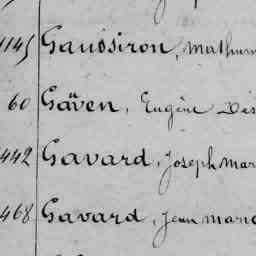 1145 Gaussiron, Mathurin
60 Gäven, Eugène Dés
442 Gavard, Joseph Mar
468 Gavard, Jean Marie